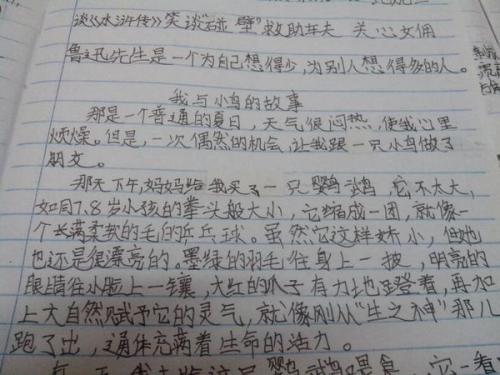 谈《水浒传》笑谈"碰壁"救助车夫 关心女佣
鲁迅先生是一个为自己想得少,为别人想得多的人。
我与小鸟的故事
那是一个普通的夏日,天气很闷热,使我心里
烦燥。但是,一次偶然的机会,让我跟一只小鸟做了
朋友。
那天下午,妈妈给我买了一只鹦鹉,它不太大,
如同7.8岁小孩的拳头般大小,它缩成一团,就像一
个长满柔软的毛的乒乓球。虽然它这样娇小,但她
也还是很漂亮的。墨绿的羽毛往身上一披,明亮的
眼睛往小脸上一镶,大红的爪子有力地蹬着,再加
上大自然赋予它的灵气,就像刚从"生之神"那儿
跑了出,通体充满着生命的活力。
有一天,我去给这只鹦鹉喂食,它一看